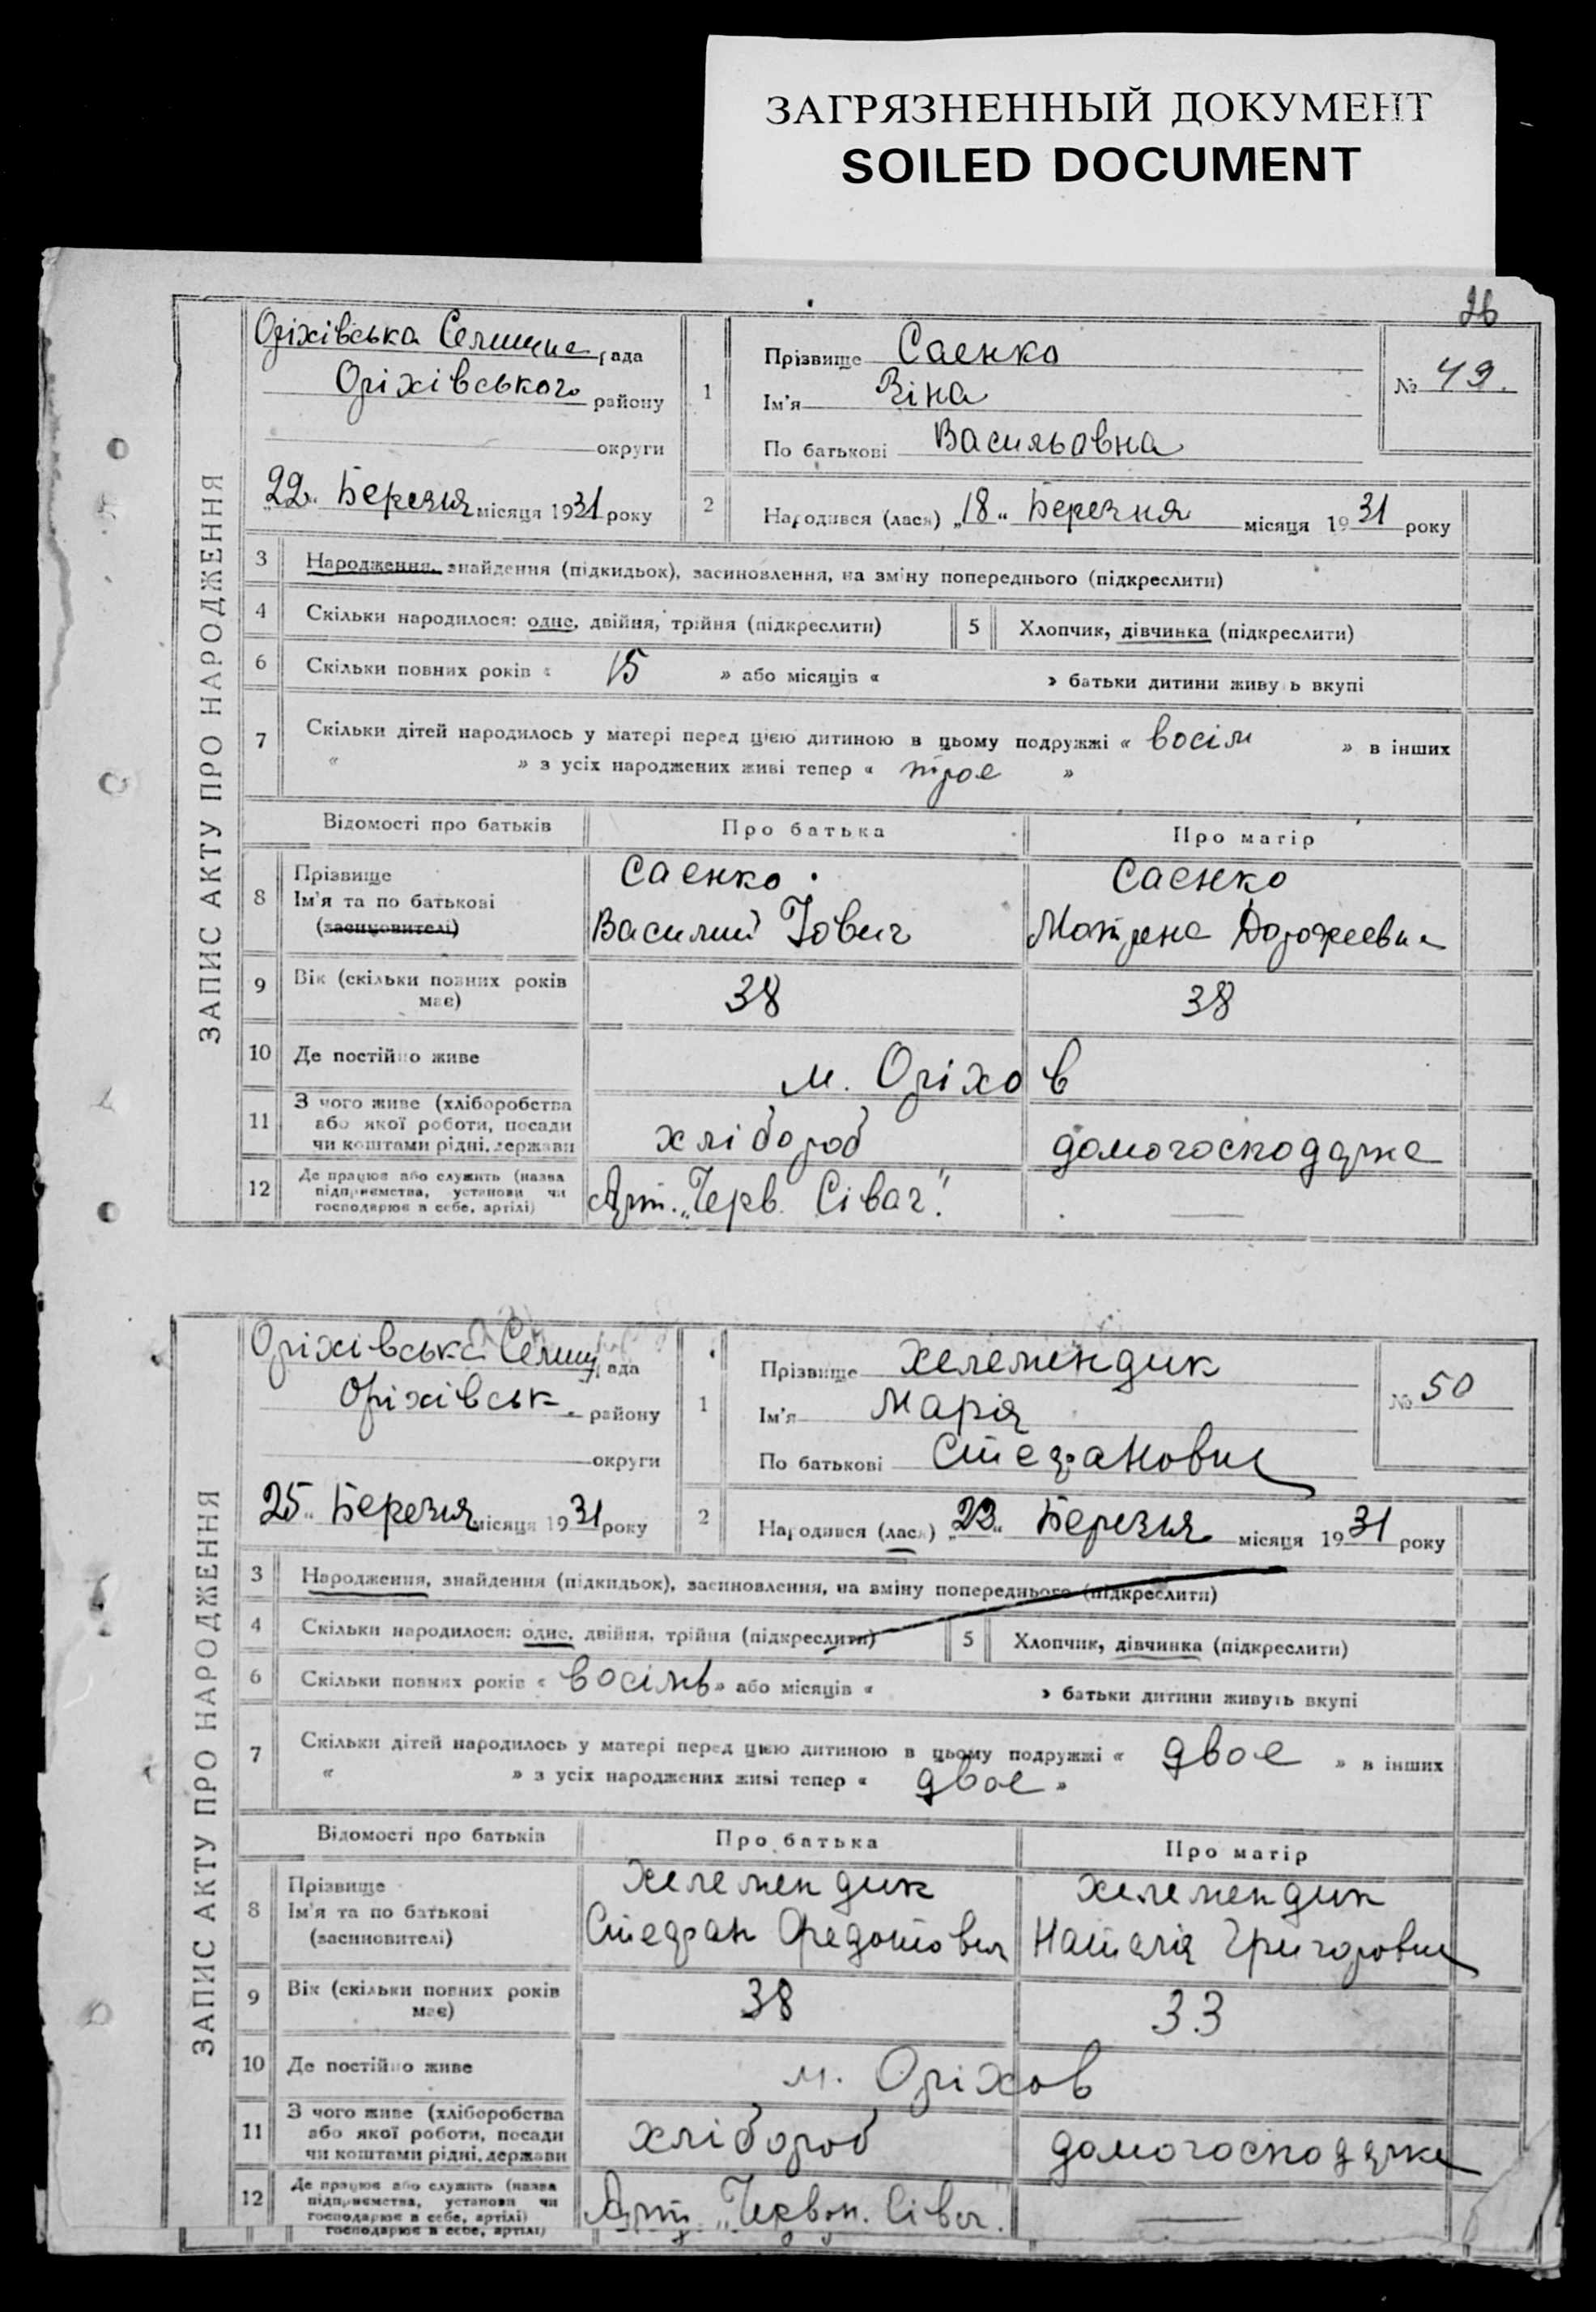 ЗАГРЯЗНЕННЫЙ ДОКУМЕНТ
SOILED DOCUMENT
26
ЗАПИС АКТУ ПРО НАРОДЖЕННЯ
Оріхівська Селищна рада
Оріхівського району
округи
"22" Березня місяця 1931 року
1
Прізвище Саенко
Ім'я Зіна
По батькові Васильовна
№ 49.
2
Народився (лася) "18" Березня місяця 1931 року
3 Народження, знайдення (підкидьок), засиновлення, на зміну попереднього (підкреслити)
4 Скільки народилося: одне, двійня, трійня (підкреслити) 5 Хлопчик, дівчинка (підкреслити)
6 Скільки повних років « 15 » або місяців « » батьки дитини живуть вкупі
7 Скільки дітей народилось у матері перед цією дитиною в цьому подружжі « восім » в інших
« » з усіх народжених живі тепер « троє »
Відомості про батьків Про батька Про матір
8 Прізвище Саенко Саєнко
Ім'я та по батькові Василий Іович Мотрена Дорофеевна
(засиновителі)
9 Вік (скільки повних років має) 38 38
10 Де постійно живе м. Оріхов
11 З чого живе (хліборобства або якої роботи, посади чи коштами рідні, держави хлібороб домогосподарка
12 Де працює або служить (назва підприємства, установи чи господарює в себе, артілі) Арт. „Черв. Сівач".
ЗАПИС АКТУ ПРО НАРОДЖЕННЯ
Оріхівська Селищ рада
Оріхівськ. району
округи
"25" Березня місяця 1931 року
1
Прізвище Хелемендик
Ім'я Марія
По батькові Стефановна
№ 50
2
Народився (лася) "23" Березня місяця 1931 року
3 Народження, знайдення (підкидьок), засиновлення, на зміну попереднього (підкреслити)
4 Скільки народилося: одне, двійня, трійня (підкреслити) 5 Хлопчик, дівчинка (підкреслити)
6 Скільки повних років « восімь » або місяців « » батьки дитини живуть вкупі
7 Скільки дітей народилось у матері перед цією дитиною в цьому подружжі « двоє » в інших
« » з усіх народжених живі тепер « двоє »
Відомості про батьків Про батька Про матір
8 Прізвище Хелемендик Хелемендик
Ім'я та по батькові Стефан Федотович Наталія Григоровна
(засиновителі)
9 Вік (скільки повних років має) 38 33
10 Де постійно живе м. Оріхов
11 З чого живе (хліборобства або якої роботи, посади чи коштами рідні, держави хлібороб домогосподарка
12 Де працює або служить (назва підприємства, установи чи господарює в себе, артілі) Арт. „Червон. Сівач".
господарює в себе, артілі)